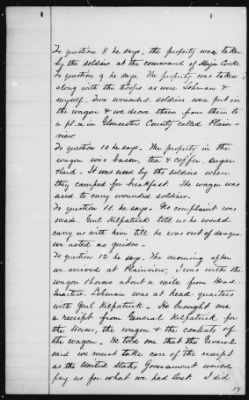 To question 8 he says, the property was taken
by the soldiers at the command of Major Cooke
To question 9 he says. The property was taken
along with the troops as were Lohman &
myself. Two wounded soldiers were put in
the wagon & we drove them from there to
a place in Gloucester County called Plain-
view
To question 10 he says. The property in the
wagon was bacon, tea & coffee, sugar
lard. It was used by the soldiers when
they camped for breakfast. The wagon was
used to carry wounded soldiers.
To question 11 he says. No complaint was
made. Genl Kilpatrick told us he would
carry us with him till he was out of danger.
we acted as guides.
To question 12 he says. The morning after
we arrived at Plainview, I was with the
wagon & horses about a mile from Head
quarters. Lohman was at head quarters
with Genl Kilpatrick. He brought me
a receipt from General Kilpatrick for
the Horses, the wagon & the contents of
the wagon. He told me that the General
said we must take care of the receipt
as the United States Government would
pay us for what we had lost. I did